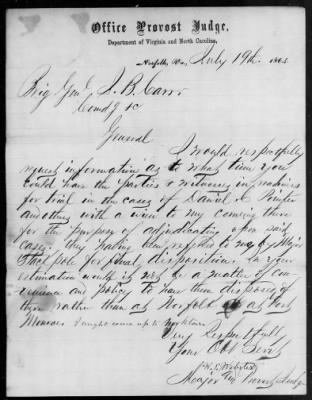 Office Provost Judge,
Department of Virginia and North Carolina,
Norfolk, Va., July 19th 186
Brig Genl J. B. Carr
Comdg &c
General
I would respectfully
request information as to what time you
could have the parties & witnesses in readiness
for trial in the cases of Daniel
and others with a view to my coming there
for the purpose of adjudicating upon said
cases: they having been referred to me by Major
Stackpole for final disposition. In your
estimation would it not be a matter of con-
venience and policy to have them disposed of
there rather than at Norfolk or at Fort
Monroe I might come up to Yorktown
Very Respectfully
Your Obt Servt
Webster
Major and Provost Judge